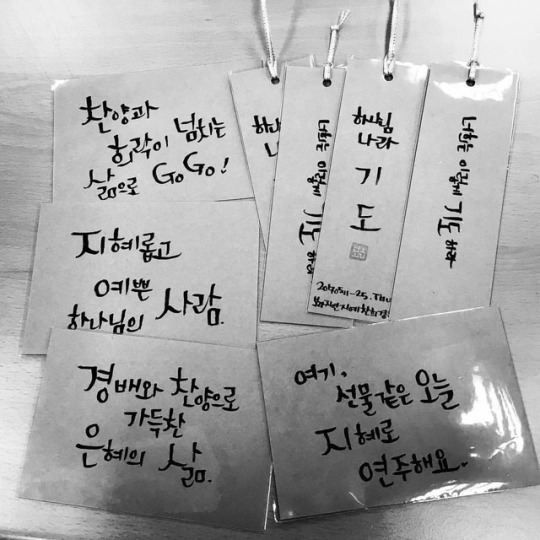 찬양과
희락이 넘치는
삶으로 GoGo!
하나
나
너희는 이렇게 기도 하라
하나님
나라
기
도
너희는 이렇게 기도 하라
지혜롭고
예쁜
하나님의 사람.
경배와 찬양으로
가득찬
은혜의 삶.
여기,
선물같은 오늘
지혜로
연주해요.